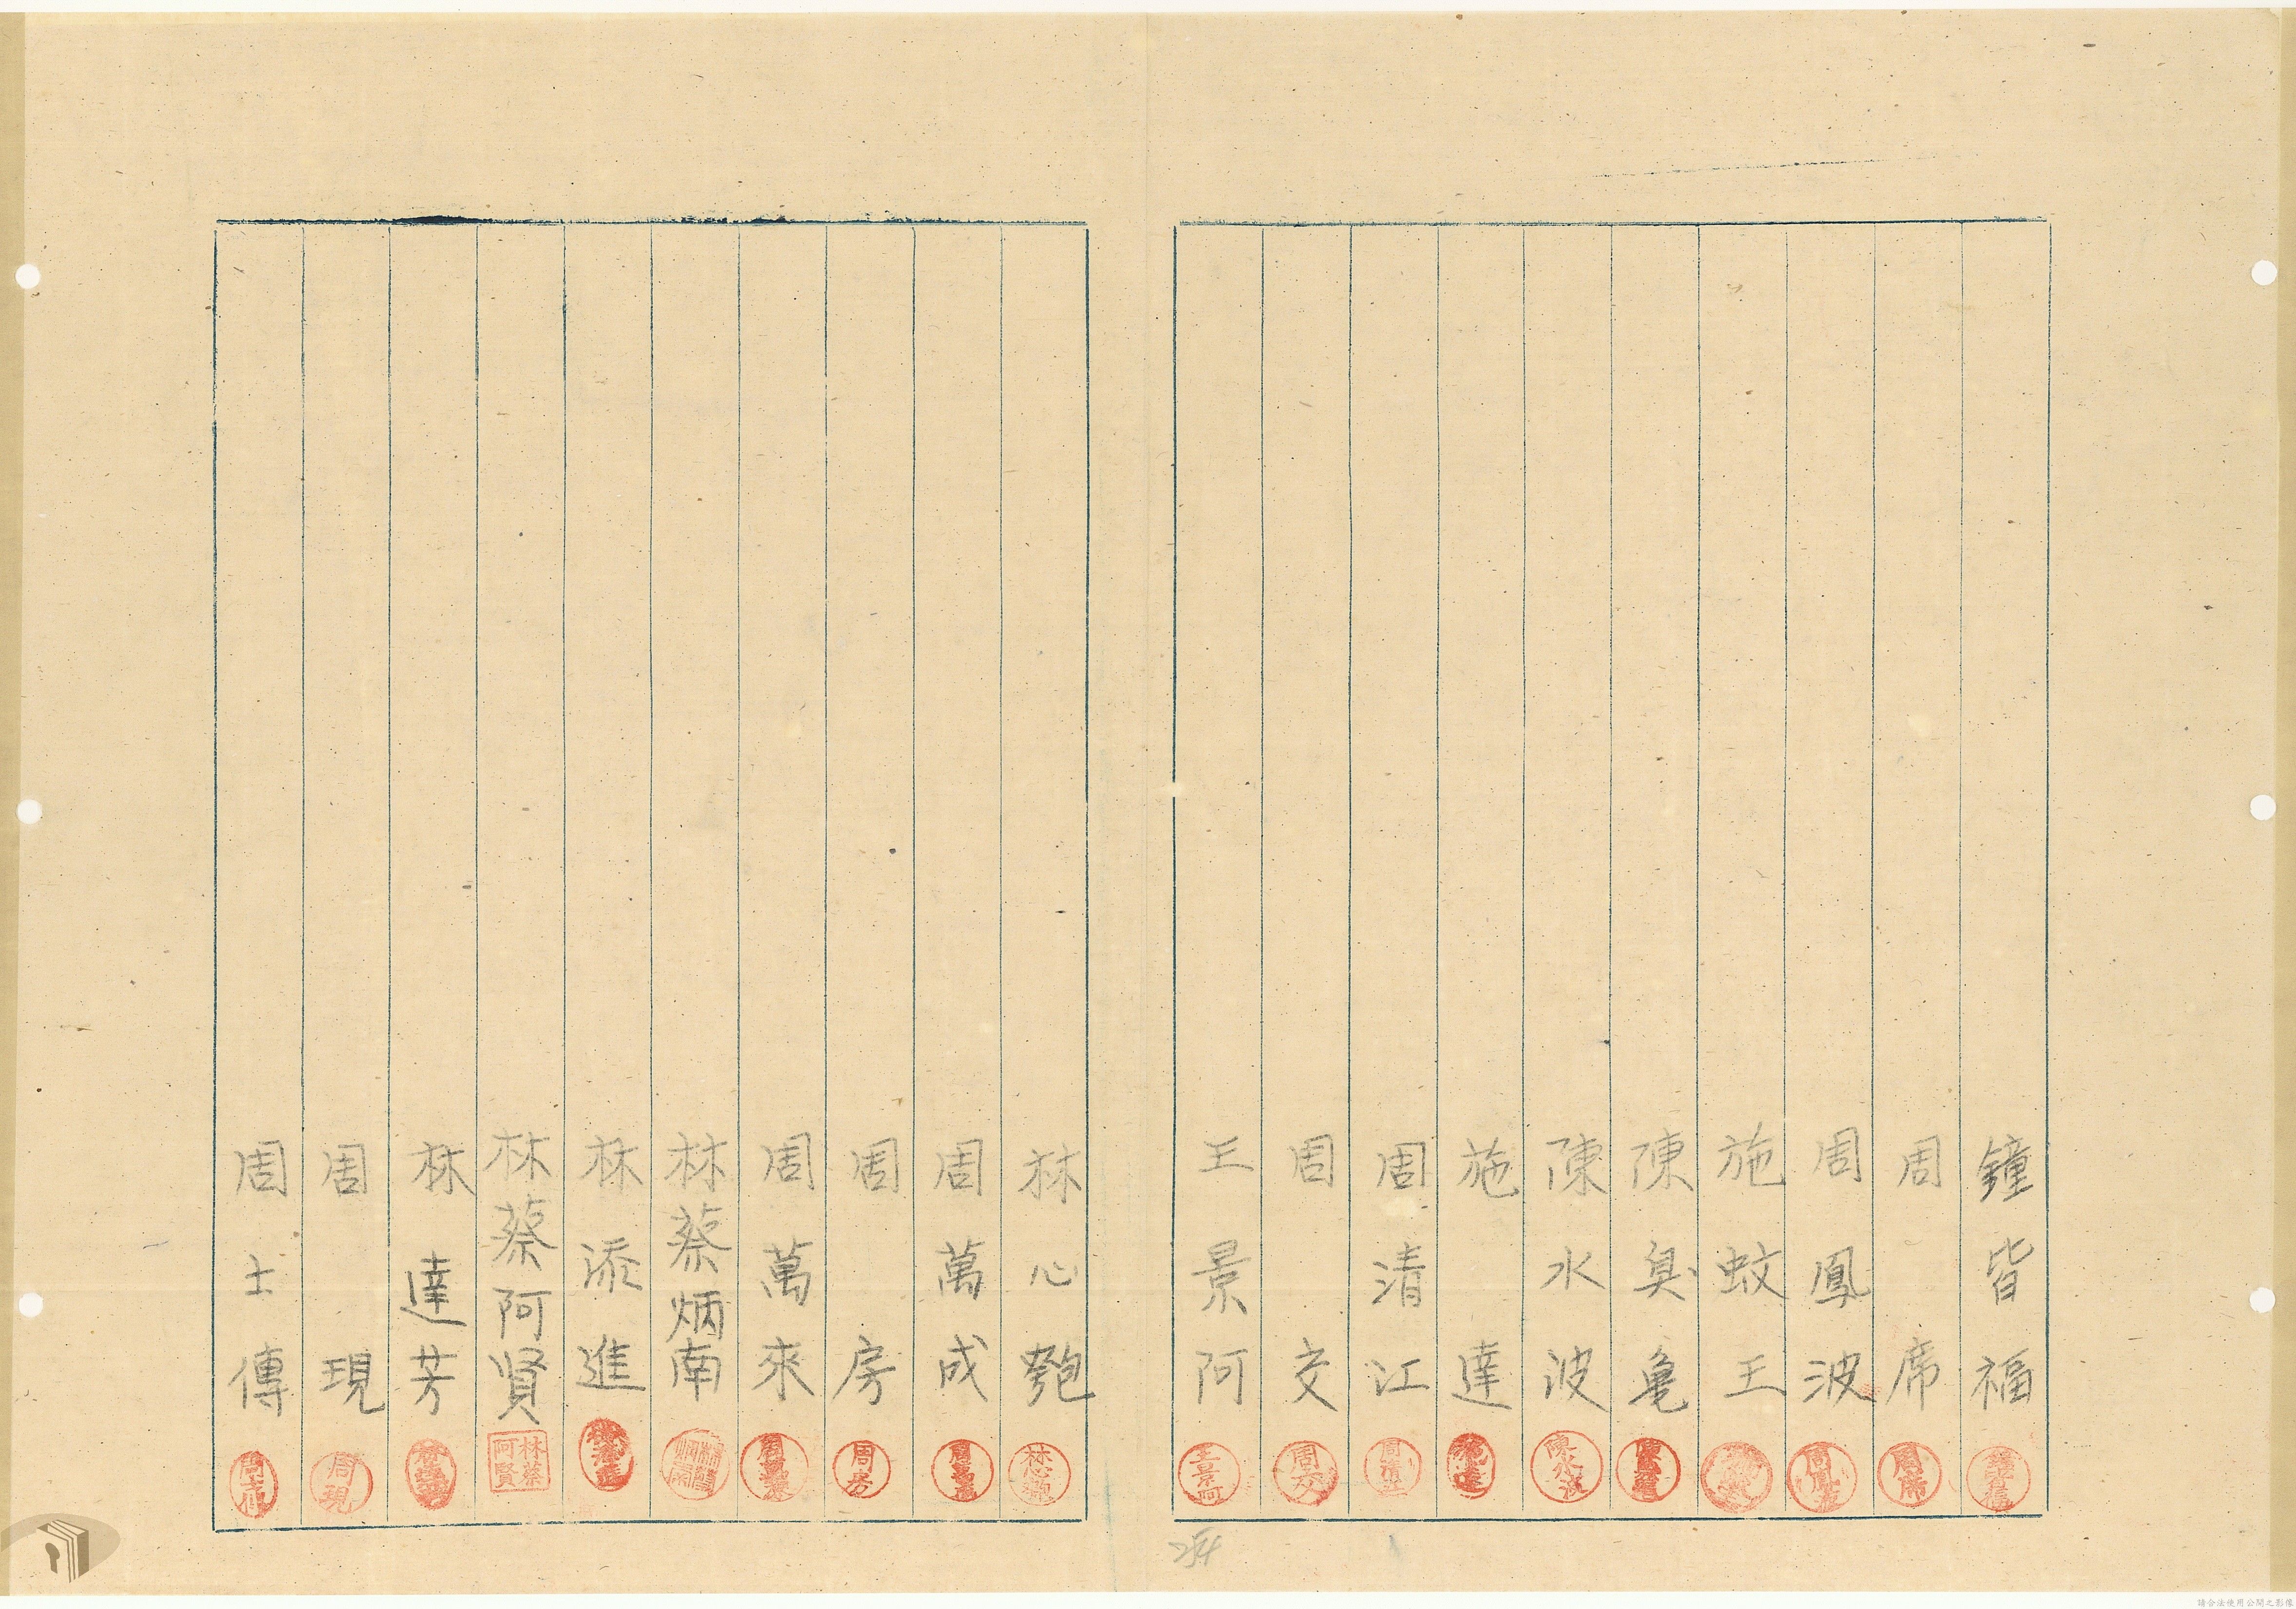 鐘皆福
周席
周鳳波
施蚊王
陳臭亀
陳水波
施達
周清江
周交
王景阿
林心匏
周萬成
周房
周萬來
林蔡炳南
林添進
林蔡阿賢
林達芳
周現
周士傳
林蔡阿賢
周房
周現
請合法使用公開之影像